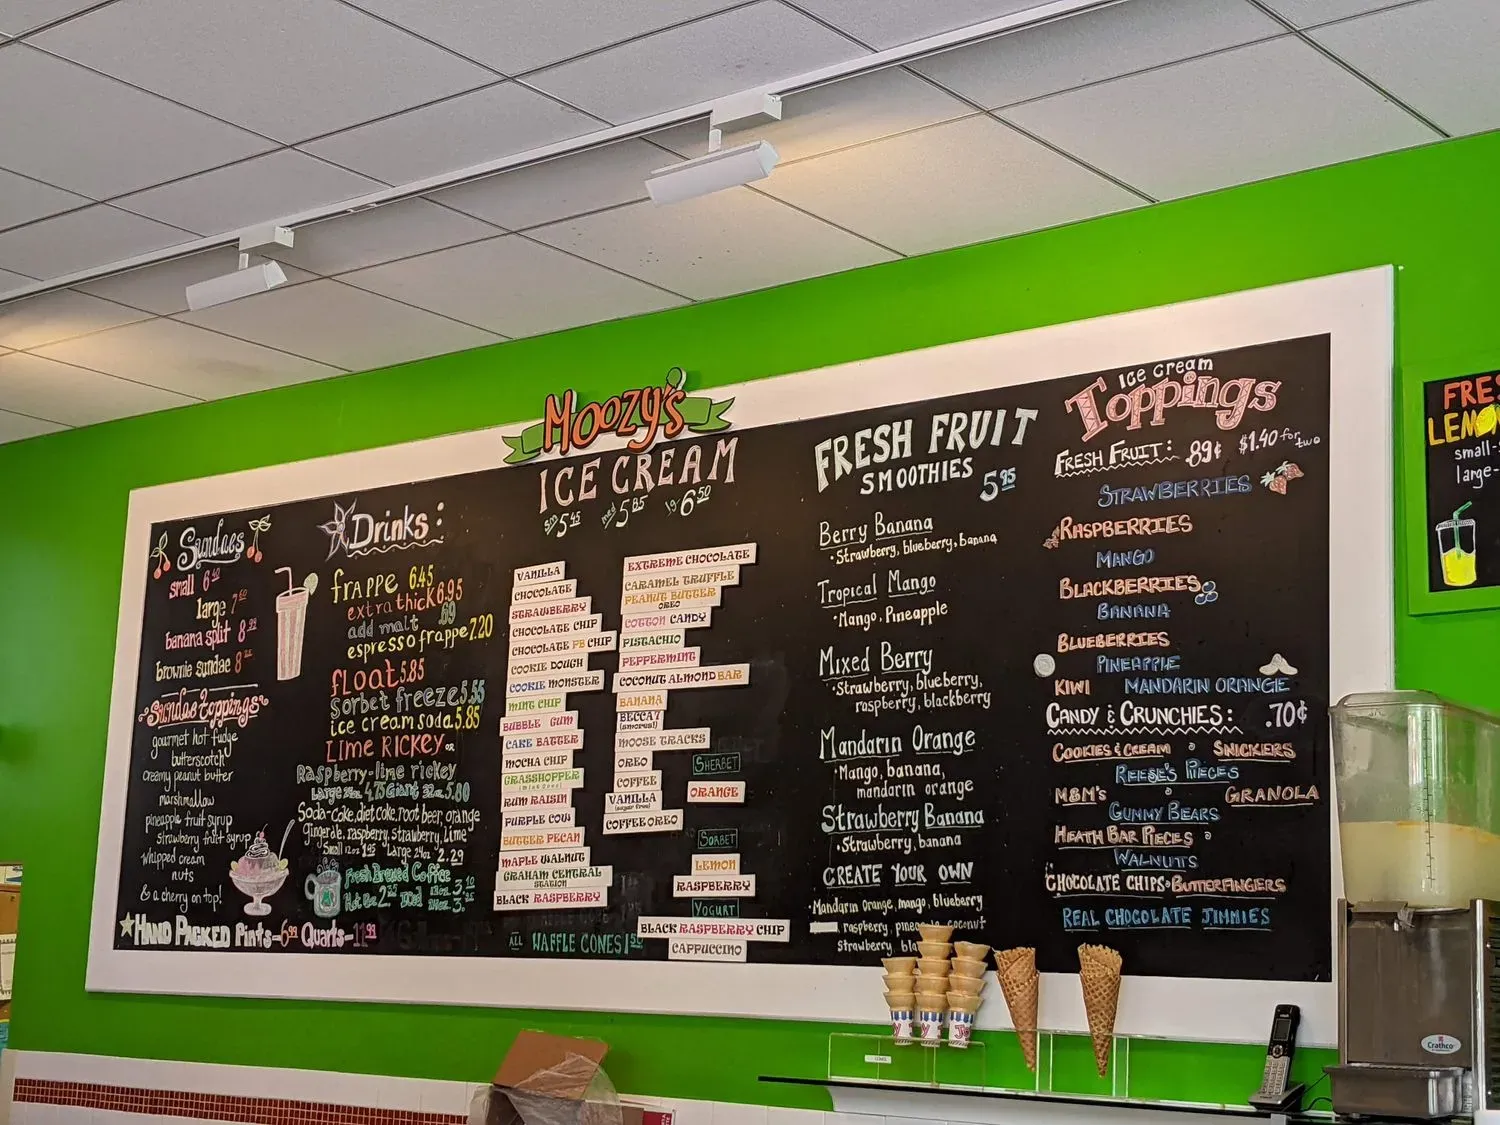 Moozy's
Sundaes
small 6
large 7
banana split 8
brownie sundae 8
Sundae toppings
gourmet hot fudge
butterscotch
creamy peanut butter
marshmallow
pineapple fruit syrup
strawberry fruit syrup
whipped cream
nuts
& a cherry on top!
HAND PACKED Pints-6.99 Quarts-11.99
Drinks:
frappe 6.45
extra thick 6.95
add malt .69
espresso frappe 7.20
float 5.85
sorbet freeze 5.55
ice cream soda 5.85
LIME RICKEY or
Raspberry-lime rickey
Large 24oz. 4.75 Giant 32oz. 5.80
Soda-coke, diet coke, root beer, orange
gingerale, raspberry, strawberry, lime
Small 12oz 1.95 Large 24oz. 2.29
Fresh Brewed Coffee
Hot 2 Iced
ICE CREAM
sm 5.45 med 5.85 lg 6.50
VANILLA
CHOCOLATE
STRAWBERRY
CHOCOLATE CHIP
CHOCOLATE PB CHIP
COOKIE DOUGH
COOKIE MONSTER
MINT CHIP
BUBBLE GUM
CAKE BATTER
MOCHA CHIP
GRASSHOPPER
(Mint Oreo)
RUM RAISIN
PURPLE COW
BUTTER PECAN
MAPLE WALNUT
GRAHAM CENTRAL
STATION
BLACK RASPBERRY
ALL WAFFLE CONES 1.50
EXTREME CHOCOLATE
CARAMEL TRUFFLE
PEANUT BUTTER
OREO
COTTON CANDY
PISTACHIO
PEPPERMINT
COCONUT ALMOND BAR
BANANA
BECCA'S
MOOSE TRACKS
OREO
COFFEE
VANILLA
(sugar free)
COFFEE OREO
SHERBET
ORANGE
SORBET
LEMON
RASPBERRY
YOGURT
BLACK RASPBERRY CHIP
CAPPUCCINO
FRESH FRUIT
SMOOTHIES 5.95
Berry Banana
•Strawberry, blueberry, banana
Tropical Mango
•Mango, Pineapple
Mixed Berry
•Strawberry, blueberry,
raspberry, blackberry
Mandarin Orange
•Mango, banana,
mandarin orange
Strawberry Banana
•Strawberry, banana
CREATE YOUR OWN
•Mandarin orange, mango, blueberry
, raspberry, coconut
strawberry,
Ice Cream
Toppings
FRESH FRUIT: .89¢ $1.40 for two
STRAWBERRIES
RASPBERRIES
MANGO
BLACKBERRIES
BANANA
BLUEBERRIES
PINEAPPLE
KIWI MANDARIN ORANGE
CANDY & CRUNCHIES: .70¢
COOKIES & CREAM • SNICKERS
REESE'S PIECES
M&M'S • GRANOLA
GUMMY BEARS
HEATH BAR PIECES •
WALNUTS
CHOCOLATE CHIPS • BUTTERFINGERS
REAL CHOCOLATE JIMMIES
FRES
LEMO
small-
large-
JOY
Crathco